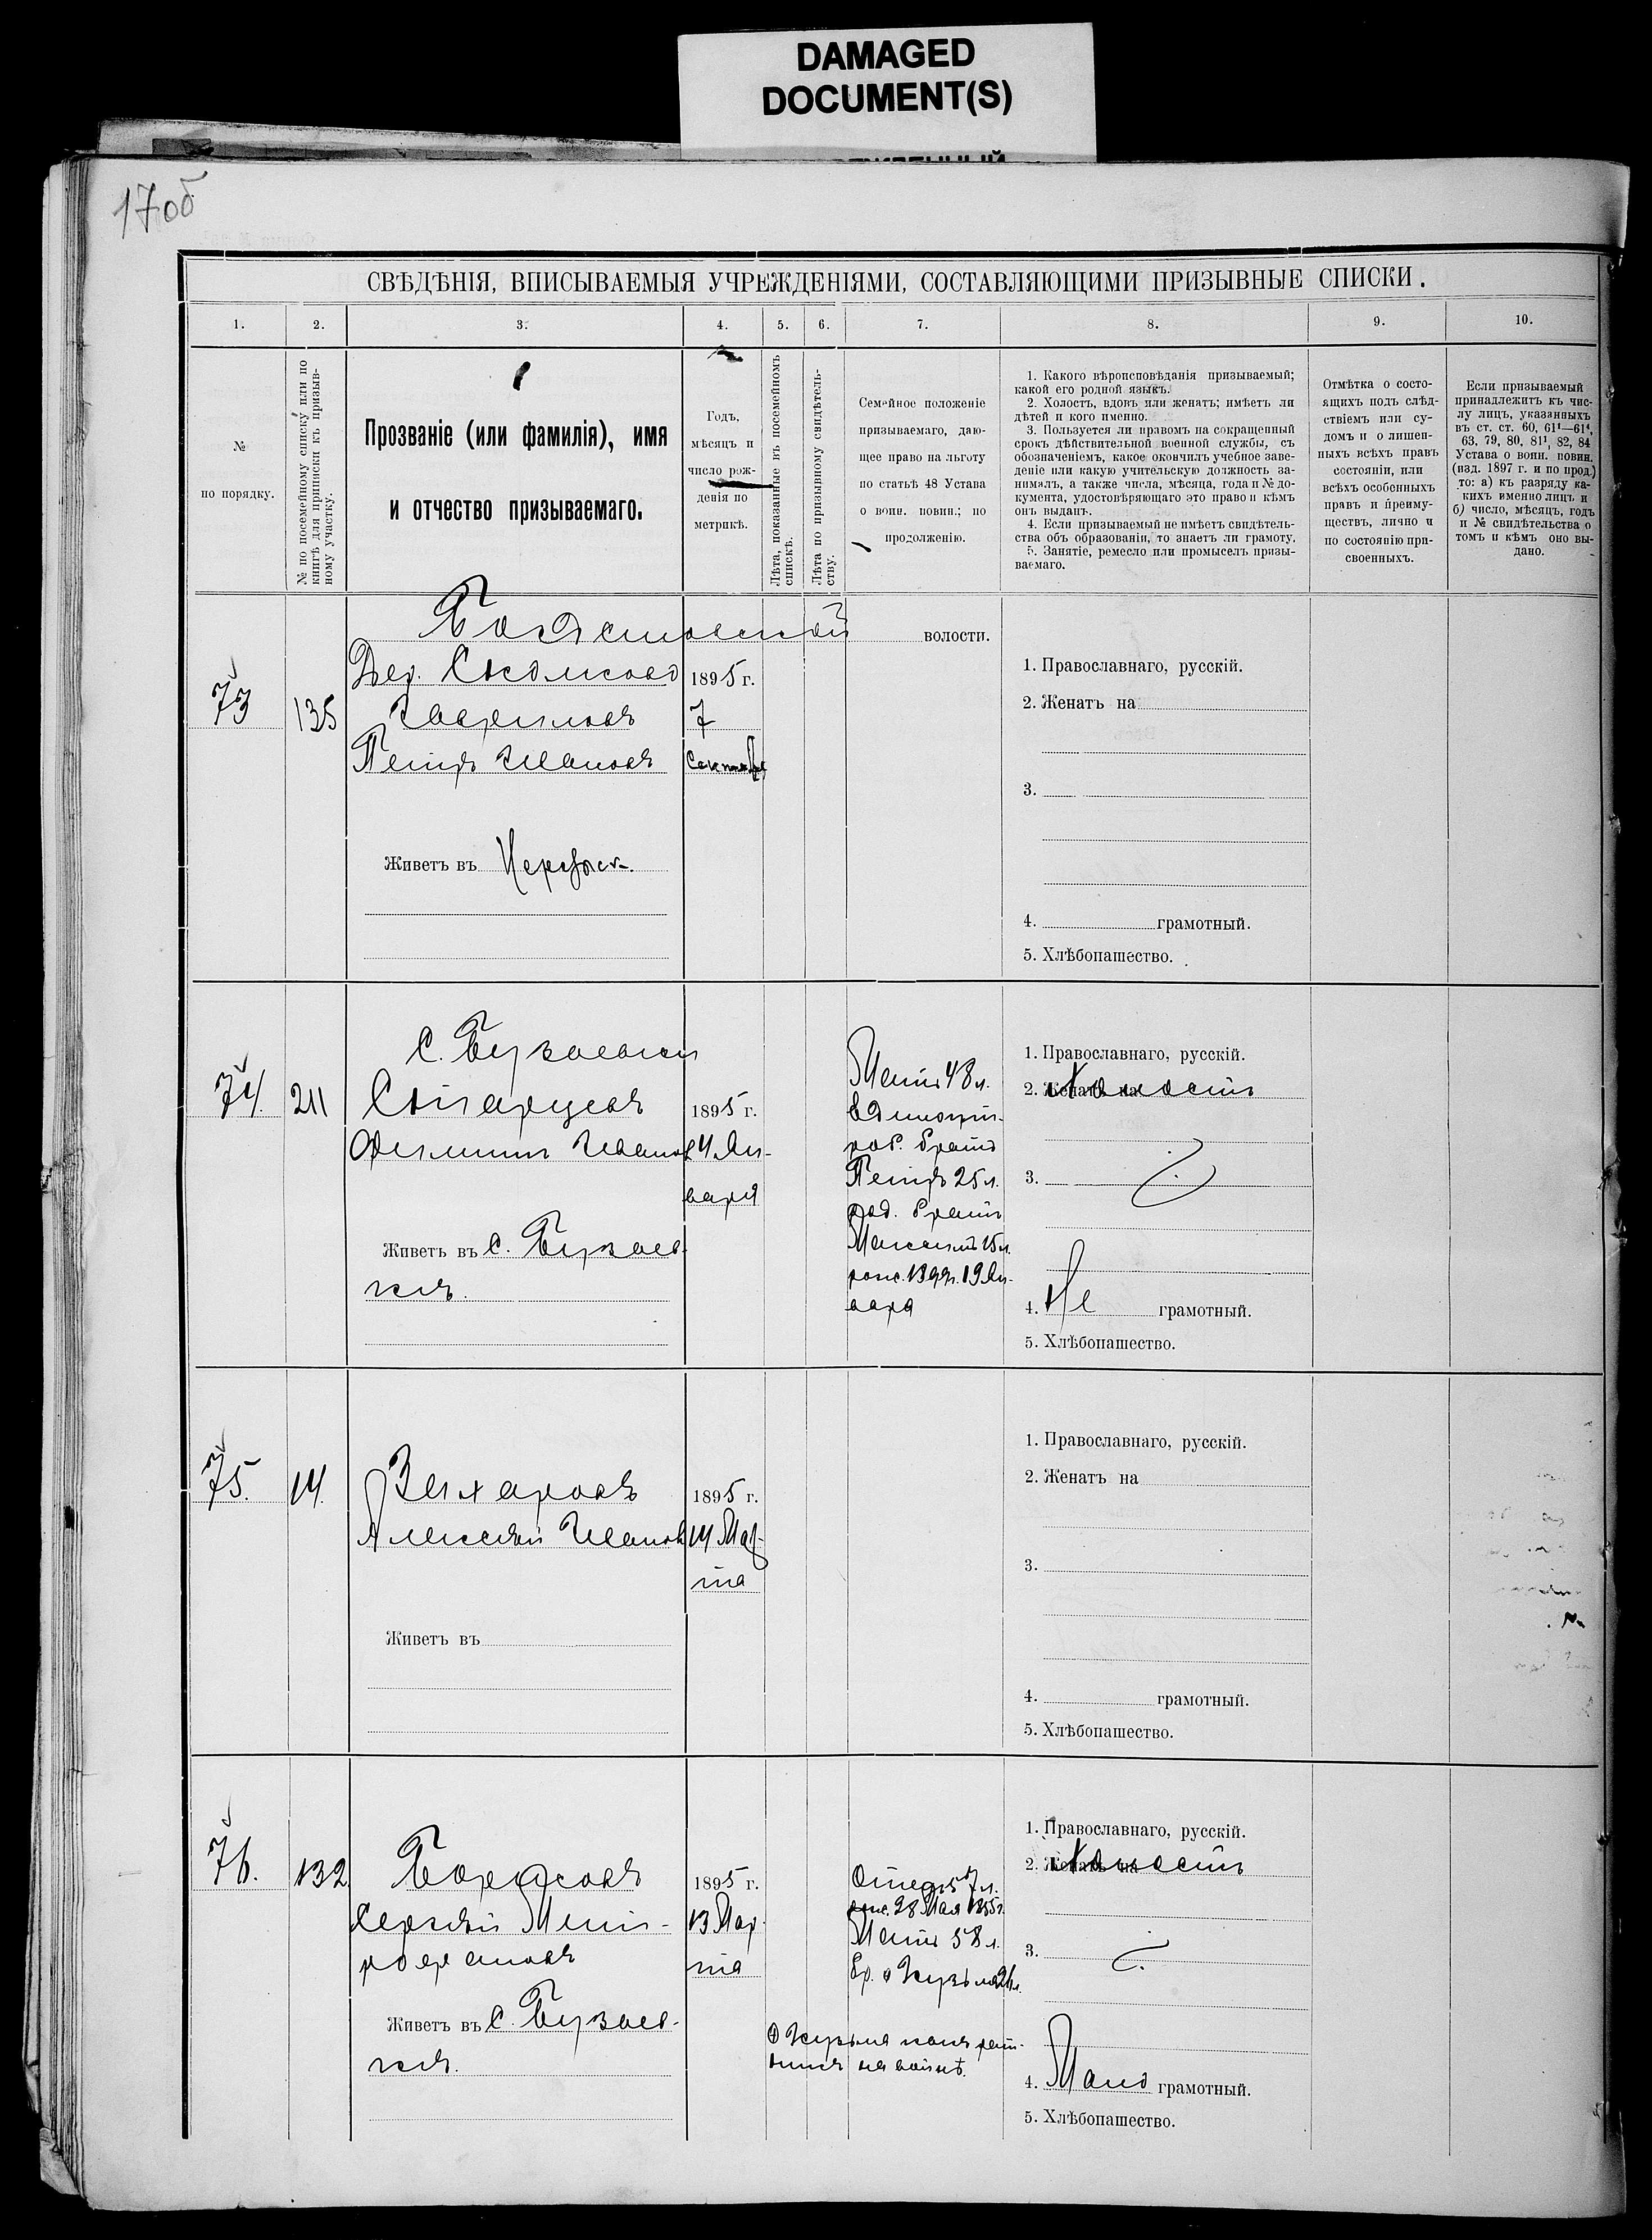 DAMAGED
DOCUMENT(S)
17об
СВѢДѢНІЯ, ВПИСЫВАЕМЫЯ УЧРЕЖДЕНІЯМИ, СОСТАВЛЯЮЩИМИ ПРИЗЫВНЫЕ СПИСКИ.
1. 2. 3. 4. 5. 6. 7. 8. 9. 10.
№
по порядку.
№ по посемейному списку или по
книгѣ для приписки къ призыв-
ному участку.
Прозваніе (или фамилія), имя
и отчество призываемаго.
Годъ,
мѣсяцъ и
число рож-
денія по
метрикѣ.
Лѣта, показанные въ посемейномъ
спискѣ.
Лѣта по призывному свидѣтель-
ству.
Семейное положеніе
призываемаго, даю-
щее право на льготу
по статьѣ 48 Устава
о воин. повин.; по
продолженію.
1. Какого вѣроисповѣданія призываемый;
какой его родной языкъ.
2. Холостъ, вдовъ или женатъ; имѣетъ ли
дѣтей и кого именно.
3. Пользуется ли правомъ на сокращенный
срокъ дѣйствительной военной службы, съ
обозначеніемъ, какое окончилъ учебное заве-
деніе или какую учительскую должность за-
нималъ, а также числа, мѣсяца, года и № до-
кумента, удостовѣряющаго это право и кѣмъ
онъ выданъ.
4. Если призываемый не имѣетъ свидѣтель-
ства объ образованіи, то знаетъ ли грамоту.
5. Занятіе, ремесло или промыселъ призы-
ваемаго.
Отмѣтка о состо-
ящихъ подъ слѣд-
ствіемъ или су-
домъ и о лишен-
ныхъ всѣхъ правъ
состоянія, или
всѣхъ особенныхъ
правъ и преиму-
ществъ, лично и
по состоянію при-
своенныхъ.
Если призываемый
принадлежитъ къ чис-
лу лицъ, указанныхъ
въ ст. ст. 60, 61¹—61⁴,
63, 79, 80, 81¹, 82, 84
Устава о воин. повин.
(изд. 1897 г. и по прод.)
то: а) къ разряду ка-
кихъ именно лицъ и
б) число, мѣсяцъ, годъ
и № свидѣтельства о
томъ и кѣмъ оно вы-
дано.
волости.
73 135
Дер.
Гавриловъ
Петръ Ивановъ
1895 г.
7
Сентября
Живетъ въ
1. Православнаго, русскій.
2. Женатъ на
3.
4. грамотный.
5. Хлѣбопашество.
74. 211
С. Бузаевки
Старцевъ
Филиппъ Иванов
1895 г.
4 Ян-
варя
Живетъ въ С. Бузаев-
кѣ.
Мать 48 л.
раб. братъ
Петръ 25 л.
род. братъ
Максимъ 15 л.
19 Ян-
варя
1. Православнаго, русскій.
2. Женатъ на Холостъ
3.
4. Не грамотный.
5. Хлѣбопашество.
75. 14.
Захаровъ
Алексѣй Иванов
1895 г.
14 Мар-
та
Живетъ въ
1. Православнаго, русскій.
2. Женатъ на
3.
4. грамотный.
5. Хлѣбопашество.
76. 132
Борисовъ
Сергѣй Мит-
рофановъ
1895 г.
13 Мар-
та
Живетъ въ С. Бузаев-
кѣ.
Отецъ 57 л.
28 Мая 1855 г.
Мать 58 л.
Бр. Кузьма 26 л.
Кузьма
на войнѣ.
1. Православнаго, русскій.
2. Женатъ на Холостъ
3.
4. Мало грамотный.
5. Хлѣбопашество.